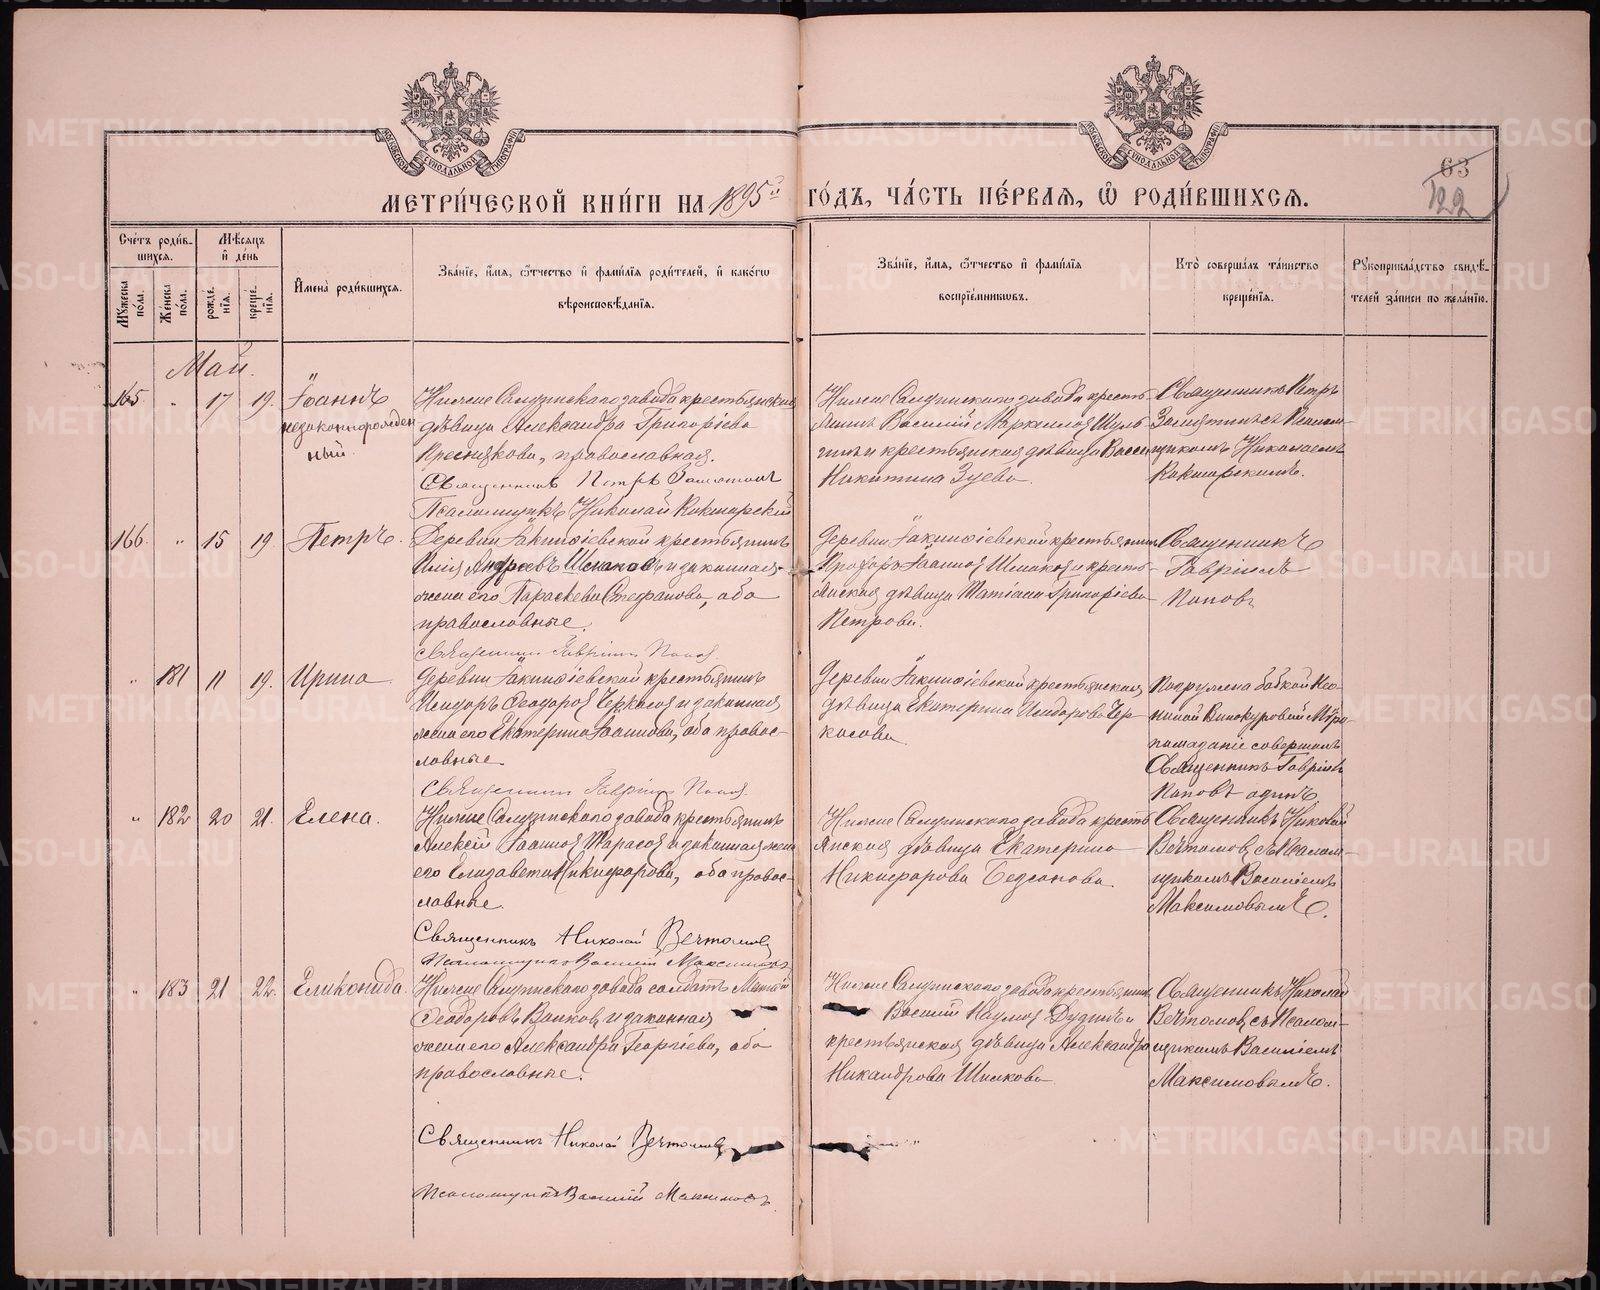 МЕТРИ́ЧЕСКОЙ КНИ́ГИ НА 1895й ГО́ДЪ, ЧА́СТЬ ПЕ́РВАЯ, Ѿ РОДИ́ВШИХСЯ.
63
122
Сче́тъ роди́в-
шихся.
Мѣсяцъ
и҆ де́нь
И҆мена̀ роди́вшихся.
Зва́нїе, и҆́мя, ѻ҆́тчество и҆ фамилїя роди́телей, и҆ како́гѡ
вѣроисповѣ́данїя.
Зва́нїе, и҆́мя, ѻ҆́тчество и҆ фамилїя
воспрїе́мниковъ.
Кто̀ соверша́лъ та́инство
креще́нїя.
Рꙋкоприкла́дство свидѣ́-
телей за́писи по жела́нїю.
Мꙋ́жеска
по́ла.
Же́нска
по́ла.
рожде́-
нїя.
креще́-
нїя.
Май.
165. " 17 19. Іоаннъ
незаконнорожден
ный
Нижне Салдинскаго завода крестьянская
дѣвица Александра Григоріева
православная.
Священникъ Петръ
Псаломщикъ Николай
Нижне Салдинскаго завода кресть-
янинъ Василій
гинъ и крестьянская дѣвица Васса
Никитина Зуева.
Священникъ Петръ
Псалом-
щикомъ Николаемъ
166. " 15 19. Петръ.
Деревни Іакинѳіевской крестьянинъ
Илія Андреевъ и законная
жена его Параскева Стефанова, оба
православные.
Священникъ Гавріилъ Попов
Деревни Іакинѳіевской крестьянинъ
Іоаннов и кресть-
янская дѣвица Татіана Григоріева
Петрова.
Священникъ
Гавріилъ
Попов
" 181 11 19. Ирина
Деревни Іакинѳіевской крестьянинъ
Исидоръ Ѳеодоров Черкасов и законная
жена его Екатерина Іоаннова, оба правос-
лавные
Священникъ Гавріилъ Попов
Деревни Іакинѳіевской крестьянская
дѣвица Екатерина Исидорова Чер-
касова
Погружена бабкой Нео-
нилой Винокуровой Мѵро-
помазаніе совершалъ
Священникъ Гавріилъ
Поповъ одинъ
" 182 20 21. Елена.
Нижне Салдинскаго завода крестьянинъ
Алексій Іоаннов Тарасов и законная жена
его Елизавета Никифорова, оба правос-
лавные.
Священникъ Николай Вечтомов
Псаломщикъ Василій Максимовъ
Нижне Салдинскаго завода кресть-
янская дѣвица Екатерина
Никифорова
Священникъ Николай
Вечтомов съ Псалом-
щикомъ Василіемъ
Максимовымъ.
" 183 21 22. Еликонида.
Нижне Салдинскаго завода солдатъ
Ѳеодоровъ и законная
жена его Александра Георгіева, оба
православные.
Священникъ Николай Вечтомов
Псаломщикъ Василій Максимовъ
Нижне Салдинскаго завода крестьянинъ
Василій Наумов и
крестьянская дѣвица Александра
Никандрова
Священникъ Николай
Вечтомов съ Псалом-
щикомъ Василіемъ
Максимовымъ.
METRIKI.GASO-URAL.RU